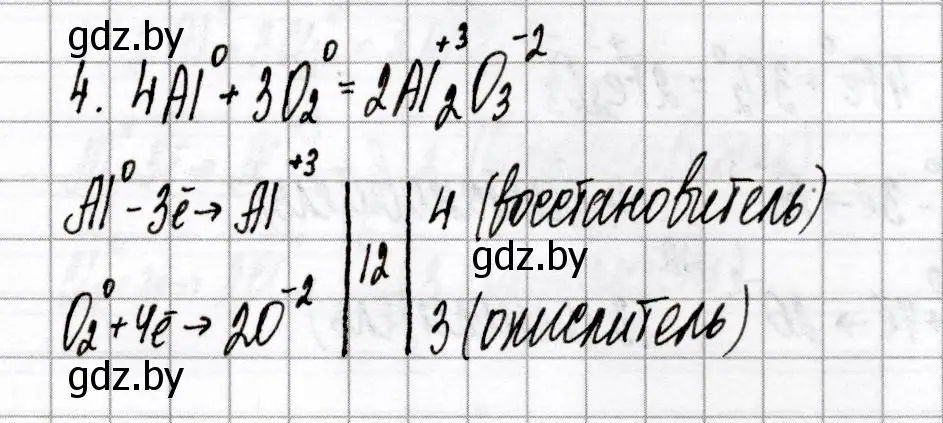 gdz.by
4. 4Al⁰ + 3O₂⁰ = 2Al₂⁺³O₃⁻²
Al⁰ - 3ē → Al⁺³ | | 4 (восстановитель)
gdz.by
12
O₂⁰ + 4ē → 2O⁻² | | 3 (окислитель)
gdz.by